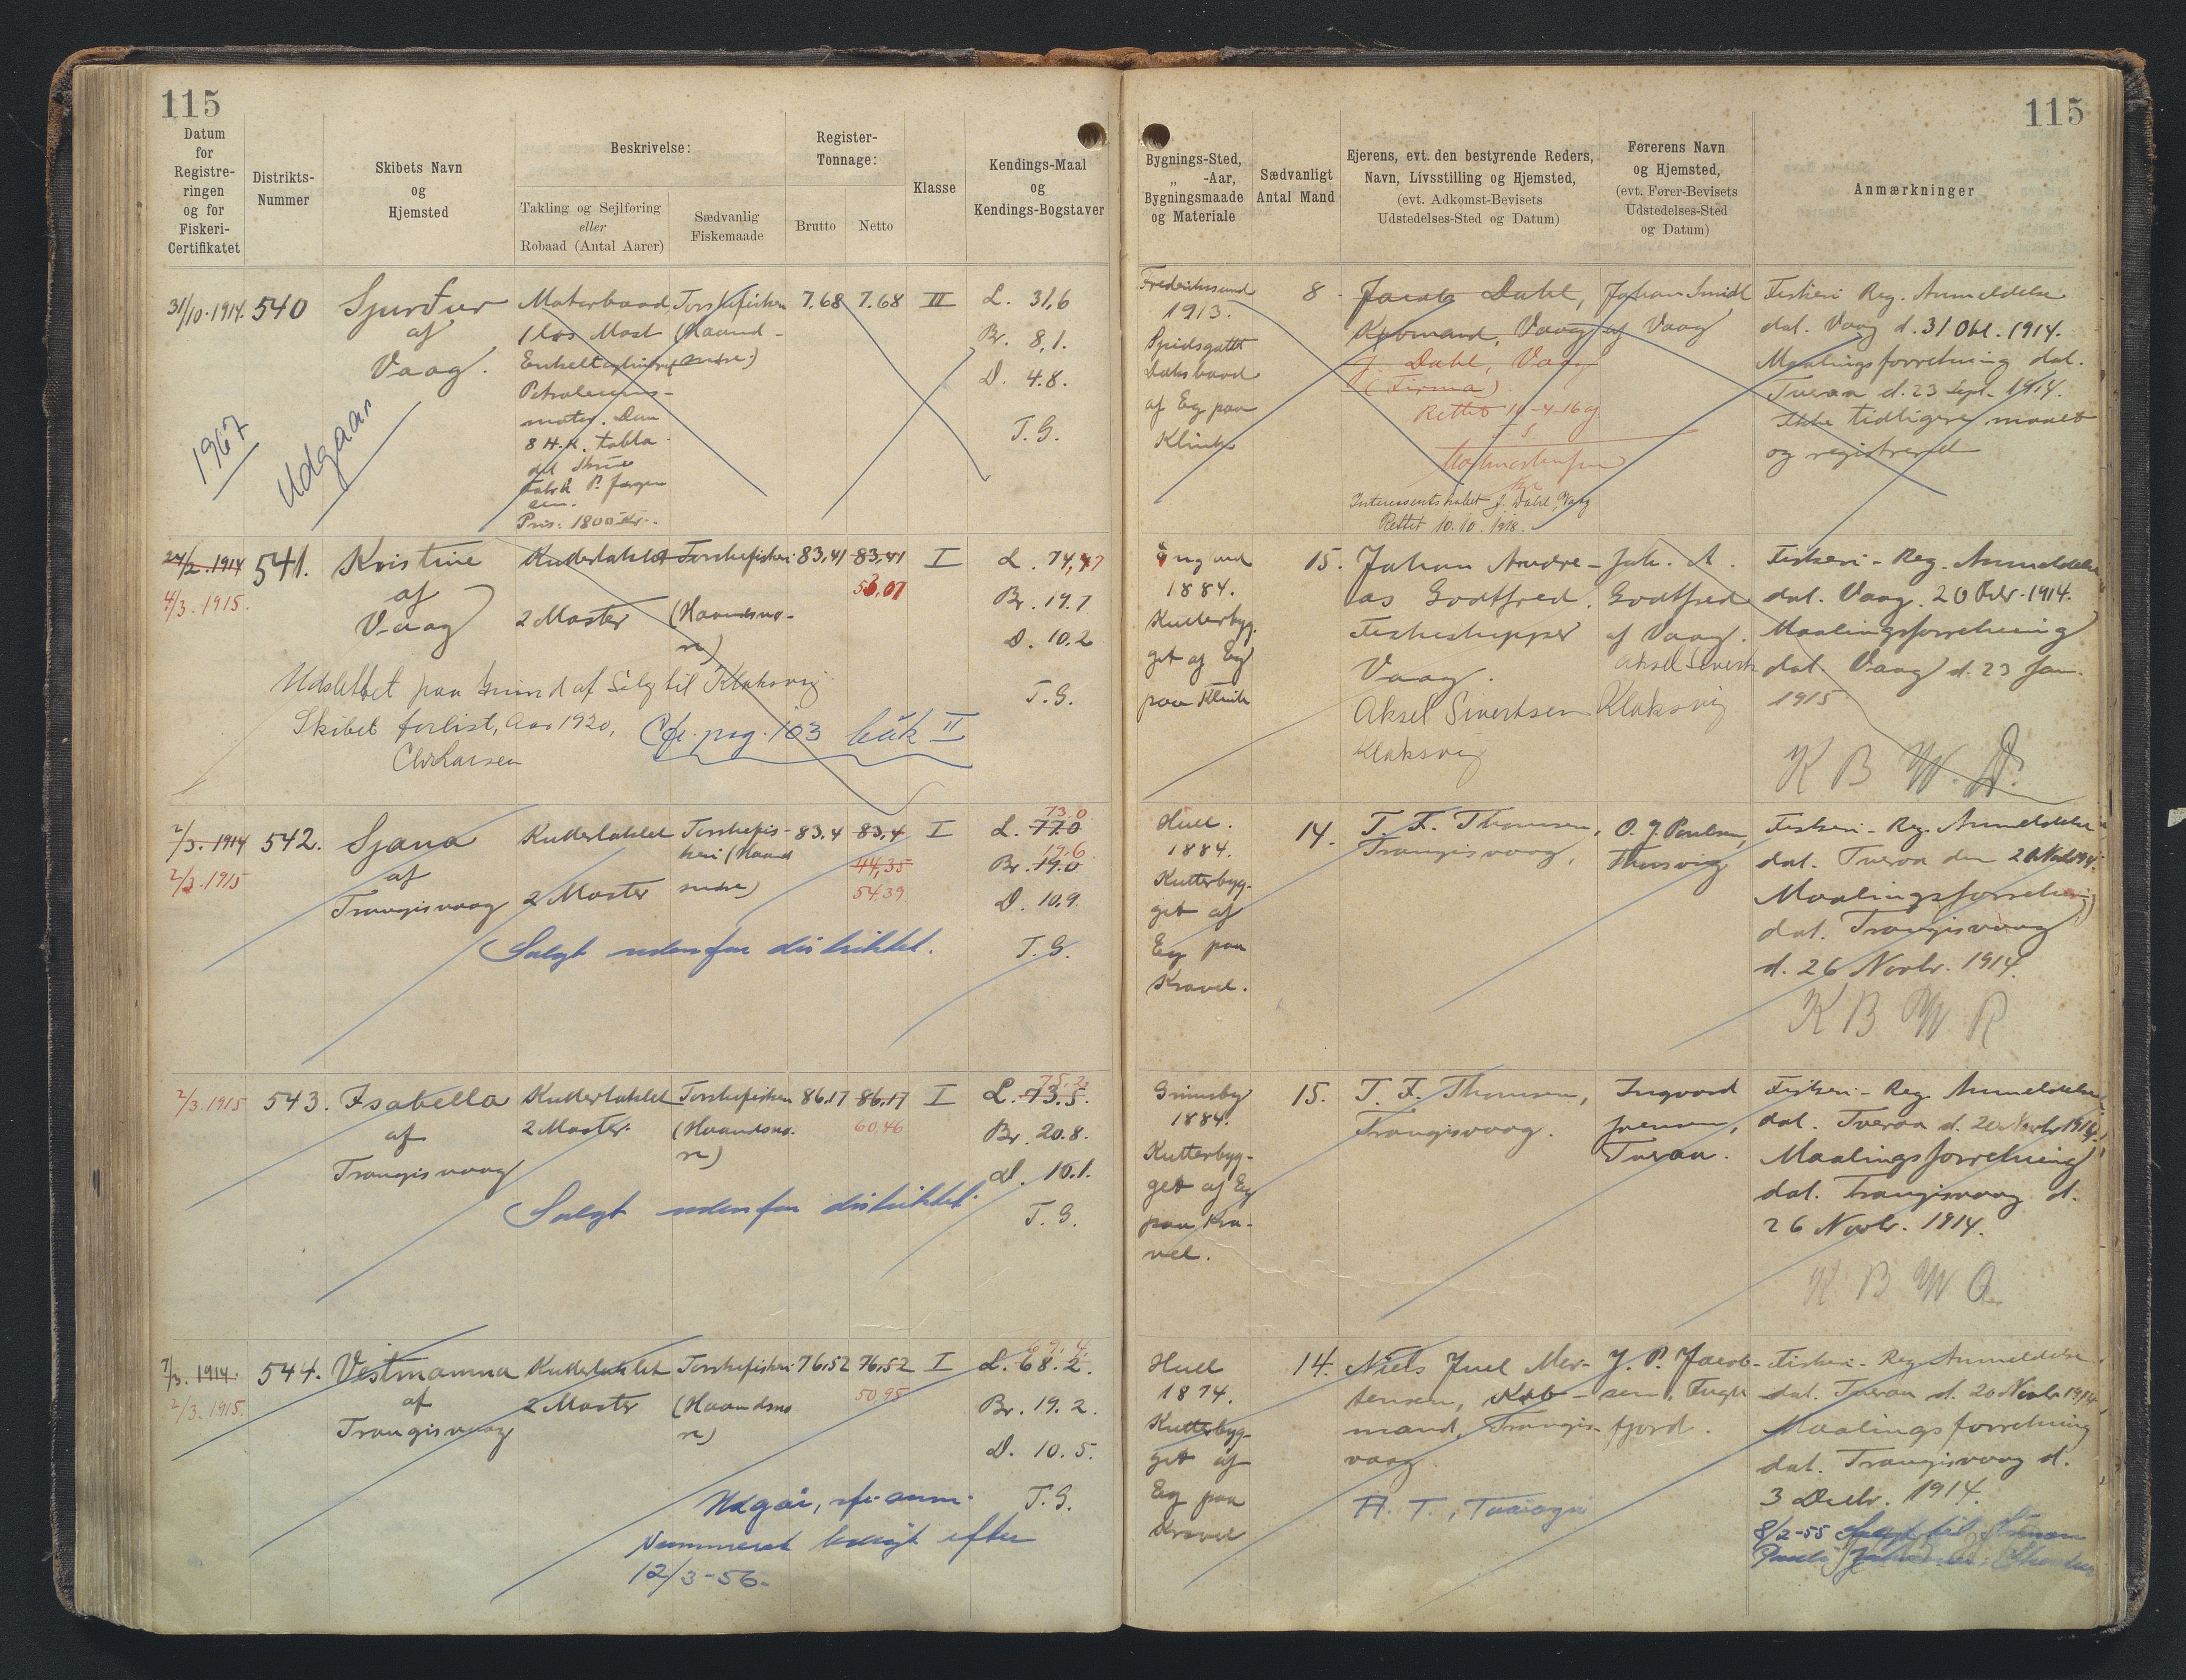 115
Datum
for
Registre-
ringen
og for
Fiskeri-
Certifikatet
Distrikts-
Nummer
Skibets Navn
og
Hjemsted
Beskrivelse:
Takling og Sejlføring
eller
Robaad (Antal Aarer)
Sædvanlig
Fiskemaade
Register-
Tonnage:
Brutto
Netto
Klasse
Kendings-Maal
og
Kendings-Bogstaver
31/10.1914. 540
Sjurður
af
Vaag.
Motorbaad
1 løs Mast
Petroleums-
motor. Dan
8 H.K.
Pris: 1800 Kr.
Torskefiskeri
(Haand-
snøre)
7.68 7.68 II
L. 31,6
Br. 8,1.
D. 4.8.
T.G.
1967
Udgaar
24/2.1914 541.
4/3.1915.
Kristine
af
Vaag
Kuttertaklet
2 Master
Torskefiskeri
(Haandsnø-
re)
83,41 83,41 I
53,07
L. 74,47
Br. 19.7
D. 10.2
T.G.
Udslettet paa Grund af Salg til Klaksvig
Skibet forlist, Aar 1920,
Chr Larsen
Cfr. pag. 103 bók II
2/3.1914 542.
2/3.1915
Sjana
af
Trangisvaag
Kuttertaklet
2 Master
Torskefis-
keri (Haand
snøre)
83.4 83,4 I
44,35
54.39
73 0
L. 77.0
19.6
Br. 19.0
D. 10.9.
T.G.
Salgt udenfor distriktet.
2/3.1915 543.
Isabella
af
Trangisvaag
Kuttertaklet
2 Master.
Torskefiskeri
(Haandsnø-
re)
86.17 86,17 I
60,46
75.2
L. 73.5.
Br. 20.8.
D. 10.1.
T.G.
Salgt udenfor distriktet.
7/3. 1914. 544.
2/3.1915.
Vestmanna
af
Trangisvaag
Kuttertaklet
2 Master
Torskefiskeri
(Haandsnø
re)
76.52 76,52 I
50,95
L. 68.2.
Br. 19.2.
D. 10.5.
T.G.
Udgår, cfr. anm.
Nummeret brugt efter
12/3-56.
115
Bygnings-Sted,
„ -Aar,
Bygningsmaade
og Materiale
Sædvanligt
Antal Mand
Ejerens, evt. den bestyrende Reders,
Navn, Livsstilling og Hjemsted,
(evt. Adkomst-Bevisets
Udstedelses-Sted og Datum)
Førerens Navn
og Hjemsted,
(evt. Fører-Bevisets
Udstedelses-Sted
og Datum)
Anmærkninger
Frederikssund
1913.
Spidsgattet
Dæksbaad
af Eg paa
Klink
8
Jacob Dahl,
Købmand, Vaag
J. Dahl, Vaag
(Firma)
Rettet 10-4-16
Interessentskabet J. Dahl, Vaag
Rettet 10.10.1918.
Johan Smidt
af Vaag
Fiskeri Reg. Anmeldelse
dat. Vaag d. 31 Okt. 1914.
Maalingsforretning dat.
Tveraa d. 23 Sept. 1914.
Ikke tidligere maalt
og registreret
England
1884.
Kutterbyg-
get af Eg
paa Klink
15.
Johan Andre-
as Godtfred.
Fiskeskipper
Vaag.
Aksel Sivertsen
Klaksvig
Joh. A.
Godtfred
af Vaag.
Aksel Sivertsen
Klaksvig
Fiskeri-Reg. Anmeldelse
dat. Vaag. 20 Febr. 1914.
Maalingsforretning
dat. Vaag d. 23 Jan.
1915
K B W D.
Hull.
1884.
Kutterbyg-
get af
Eg paa
Kravel.
14.
T. F. Thomsen,
Trangisvaag,
O. J. Poulsen,
Fiskeri-Reg. Anmeldelse
dat. Tveraa den 20 Novbr 1914.
Maalingsforretning
dat. Trangisvaag
d. 26 Novbr. 1914.
K B W P
Grimsby
1884.
Kutterbyg-
get af Eg
paa Kra-
vel.
15.
T. F. Thomsen,
Trangisvaag.
Ingvard
Joensen,
Tveraa.
Fiskeri-Reg. Anmeldelse
dat. Tveraa d. 20 Novbr 1914.
Maalingsforretning
dat. Trangisvaag d.
26 Novbr. 1914.
K B W Q
Hull
1874.
Kutterbyg-
get af
Eg paa
Kravel
14.
Niels Juel Mor-
tensen, Køb-
mand, Trangis-
vaag.
J. P. Jacob-
sen, Fugle
fjord.
Fiskeri-Reg Anmeldelse
dat. Tveraa d. 20 Novbr 1914.
Maalingsforretning
dat. Trangisvaag d.
3 Decbr. 1914.
8/2-55 Solgt til